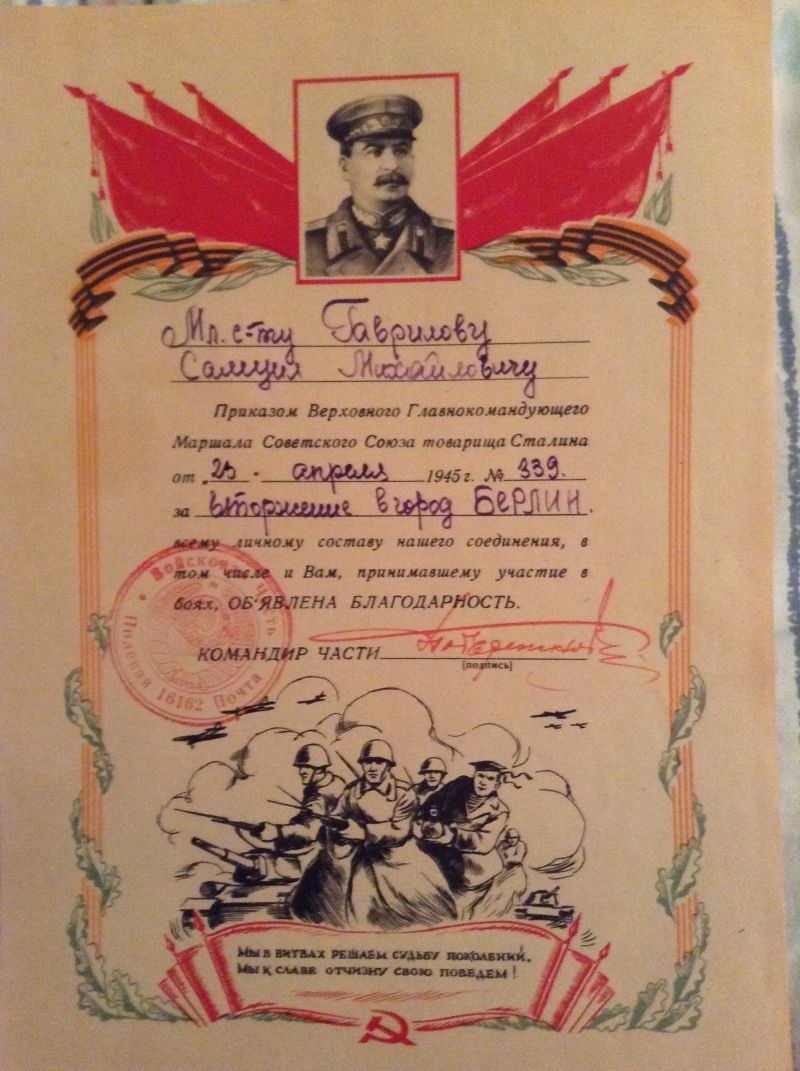 Мл. с-ту Гаврилову
Михайловичу
Приказом Верховного Главнокомандующего
Маршала Советского Союза товарища Сталина
от „23 - апреля 1945 г. № 339.
за вторжение в город БЕРЛИН.
всему личному составу нашего соединения, в
том числе и Вам, принимавшему участие в
боях, ОБ'ЯВЛЕНА БЛАГОДАРНОСТЬ.
Войсковая часть
Полевая 16162 Почта
КОМАНДИР ЧАСТИ
(подпись)
МЫ В БИТВАХ РЕШАЕМ СУДЬБУ ПОКОЛЕНИЙ,
МЫ К СЛАВЕ ОТЧИЗНУ СВОЮ ПОВЕДЕМ!